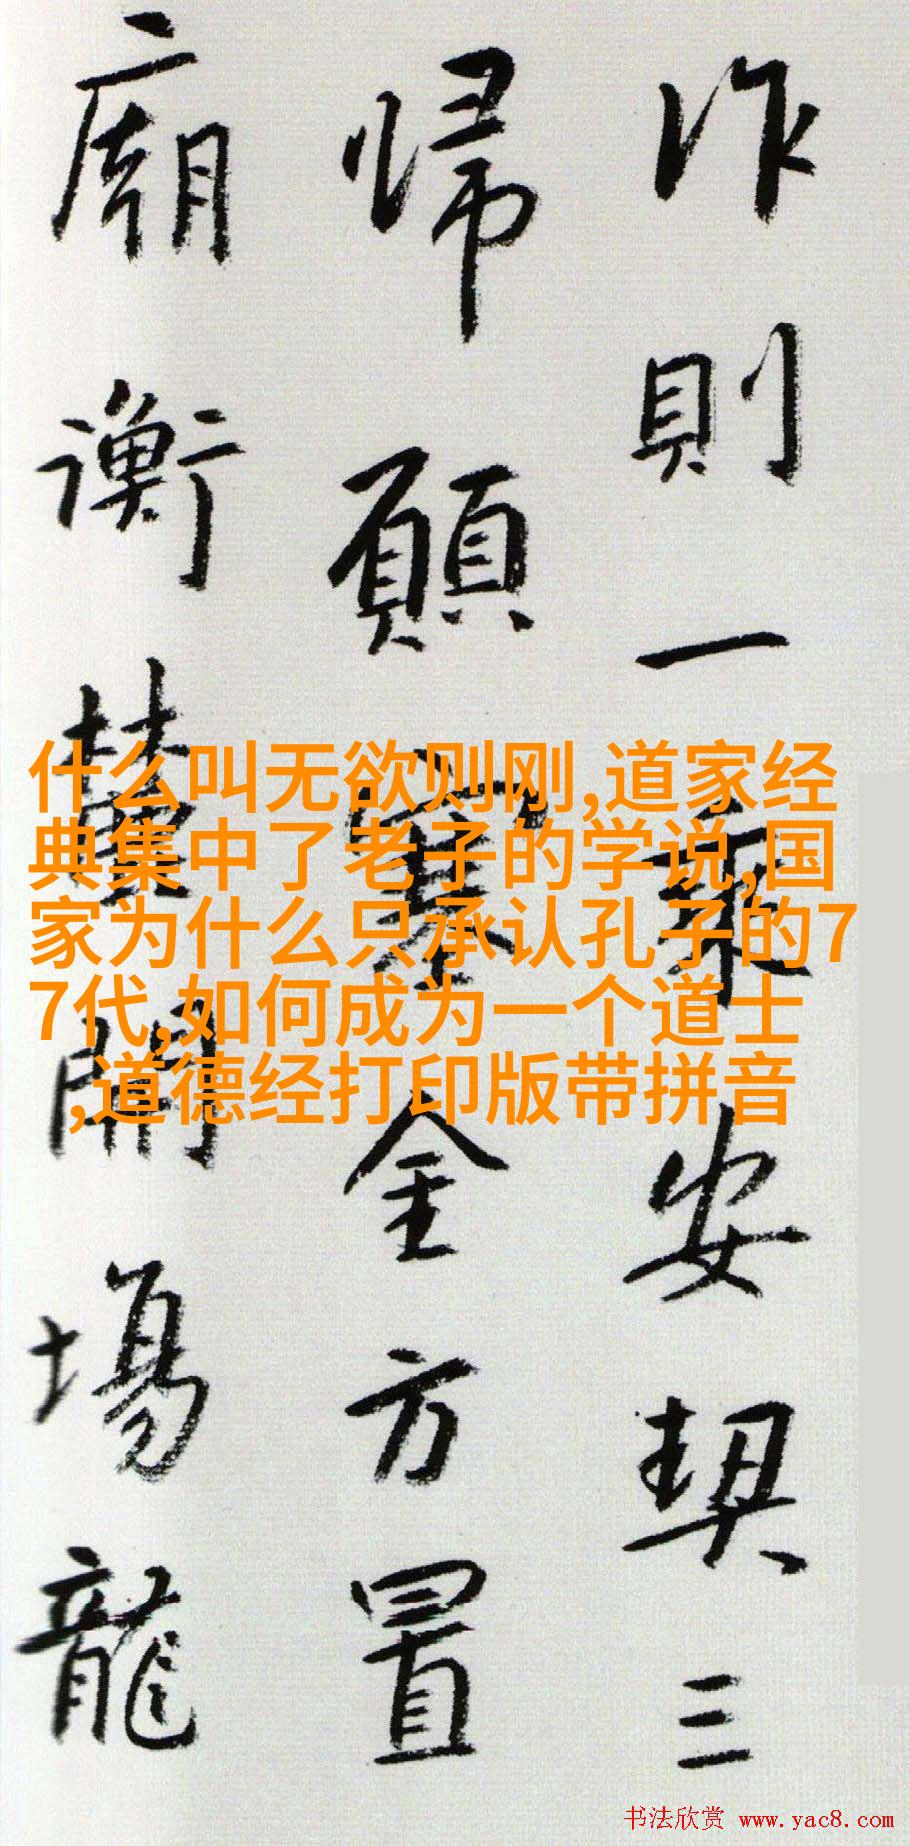 作則一乘安契三
歸願寰全方置
廟衡兰開場龍
什么叫无欲则刚,道家经
典集中了老子的学说,国
家为什么只承认孔子的7
7代,如何成为一个道士
,道德经打印版带拼音
书法欣赏 www.yac8.com